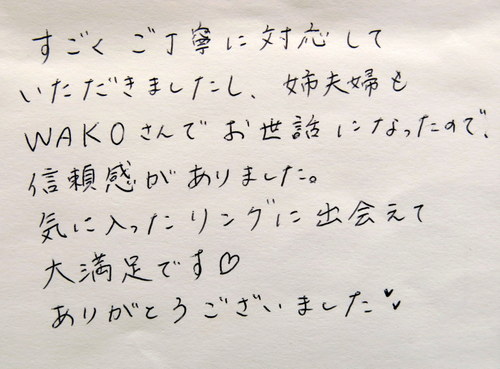 すごく ご丁寧に対応して
いただきましたし、姉夫婦も
WAKOさんで お世話になったので、
信頼感がありました。
気に入ったリングに出会えて
大満足です♡
ありがとうございました♥♥